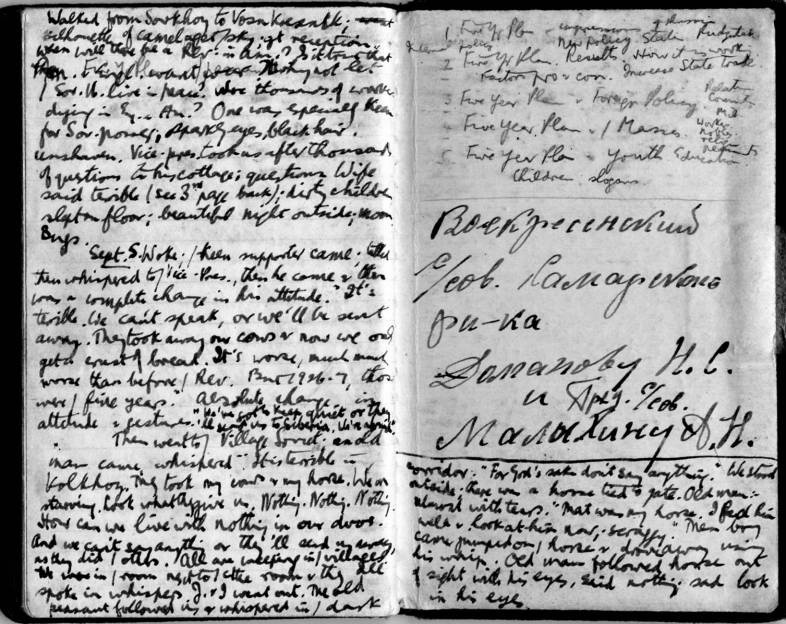 Walked from Sovkhoz to Voskresensk;
silhouette of camel against sky; got reception.
when will there be a Rev. in Am.? Is it true that
/ Sov. U. live in peace? Were thousands of workers
dying in Eng. & Am.? One was especially keen
for Sov. power, sparkly eyes, black hair,
unshaven. Vice-pres. took us after thousands
of questions to his cottage; questions. Wife
said terrible (see 3rd page back); dirty children
slept on floor; beautiful night outside; moon
Bugs.
Sept. 5. Woke; / keen supporter came; talked
then whispered to / Vice-Pres., then he came & there
was a complete change in his attitude. "It's
terrible. We can't speak, or we'll be sent
away. They took away our cows & now we only
get a crust of bread. It's worse, much much
worse than before / Rev. But 1926-7, those
were / fine years." Absolute change in
attitude & gestures. "We've got to keep quiet or they
'll send us to Siberia. We're
Then went to / Village Soviet. and old
man came, whispered "It is terrible in
Kolkhoz. They took my cows & my horse. We are
starving. Look what they give us. Nothing. Nothing. Nothing.
How can we live with nothing in our dvor.
And we can't say anything or they'll send us away
as they did / others. All are weeping in / villages
We were in / room next to / other room & they all
spoke in whispers. J. & I went out. The old
peasant followed us & whispered in / dark
1 Five Yr Plan
New policy Stalin
2 Five Yr Plan. Results How it is work
Factors pro & con. Increase State trade
3 Five Year Plan & Foreign Policy
4 Five Year Plan & / Masses.
5 Five Year Plan & Youth Education
Children slogans.
Воскресинский
С/сов. Самарского
ри-ка
Допапову Н. С.
и Пред. С/сов.
Малахину А. Н.
corridor: "For God's sake don't say anything." We stood
outside; there was a horse tied to gate. Old man
almost with tears: "That was my horse. I fed him
well & look at him now, scraggy." Then boy
came jumped on / horse & drove away using
his whip. Old man followed horse out
of sight with his eyes, said nothing sad look
in his eyes.